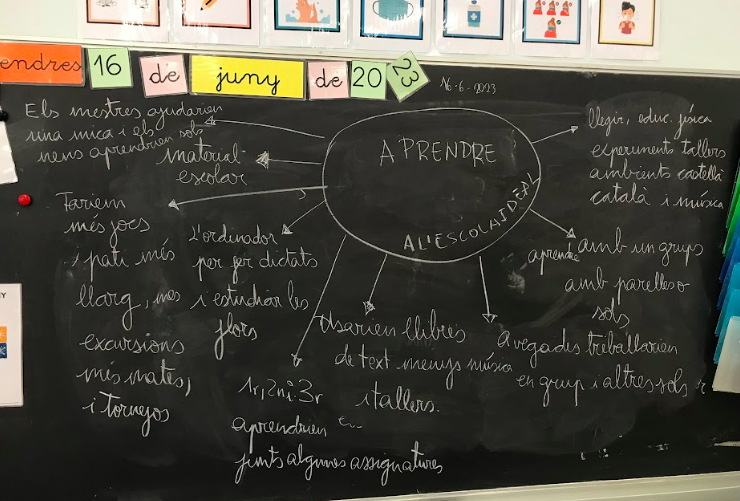 endres 16 de juny de 20 23
16-6-2023
Els mestres ajudarien
una mica i els
nens aprendrien sols
material
escolar
APRENDRE
A L'ESCOLA IDEAL
llegir, educ. física
experiments tallers
ambients castellà
català i música
Fariem
més jocs
i pati més
llarg, més
excursions
més mates,
i Torneјos
L'ordinador
per fer dictats
i estudiar les
flors
1r, 2n i 3r
aprendrien en
junts algunes assignatures
Usarien llibres
de text menys música
i tallers.
A vegades treballarien
en grup i altres sols
aprendre amb un grup
amb parelles o
sols